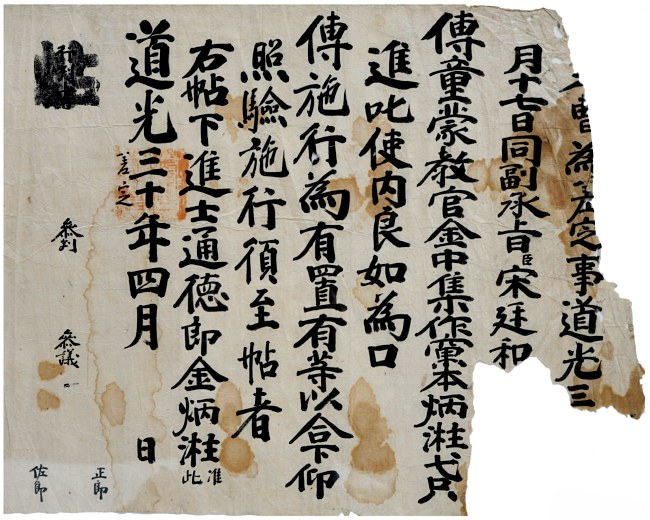 曹為差定事道光三
月十七日同副承旨臣宋廷和
傳童蒙教官金中集作窠本炳弋只
進叱使內良如為口
傳施行為有置有等以合下仰
照驗施行須至帖者
右帖下進士通德郎金炳
准此
道光三十年四月 日
差定
參判 參議
正郎
佐郎